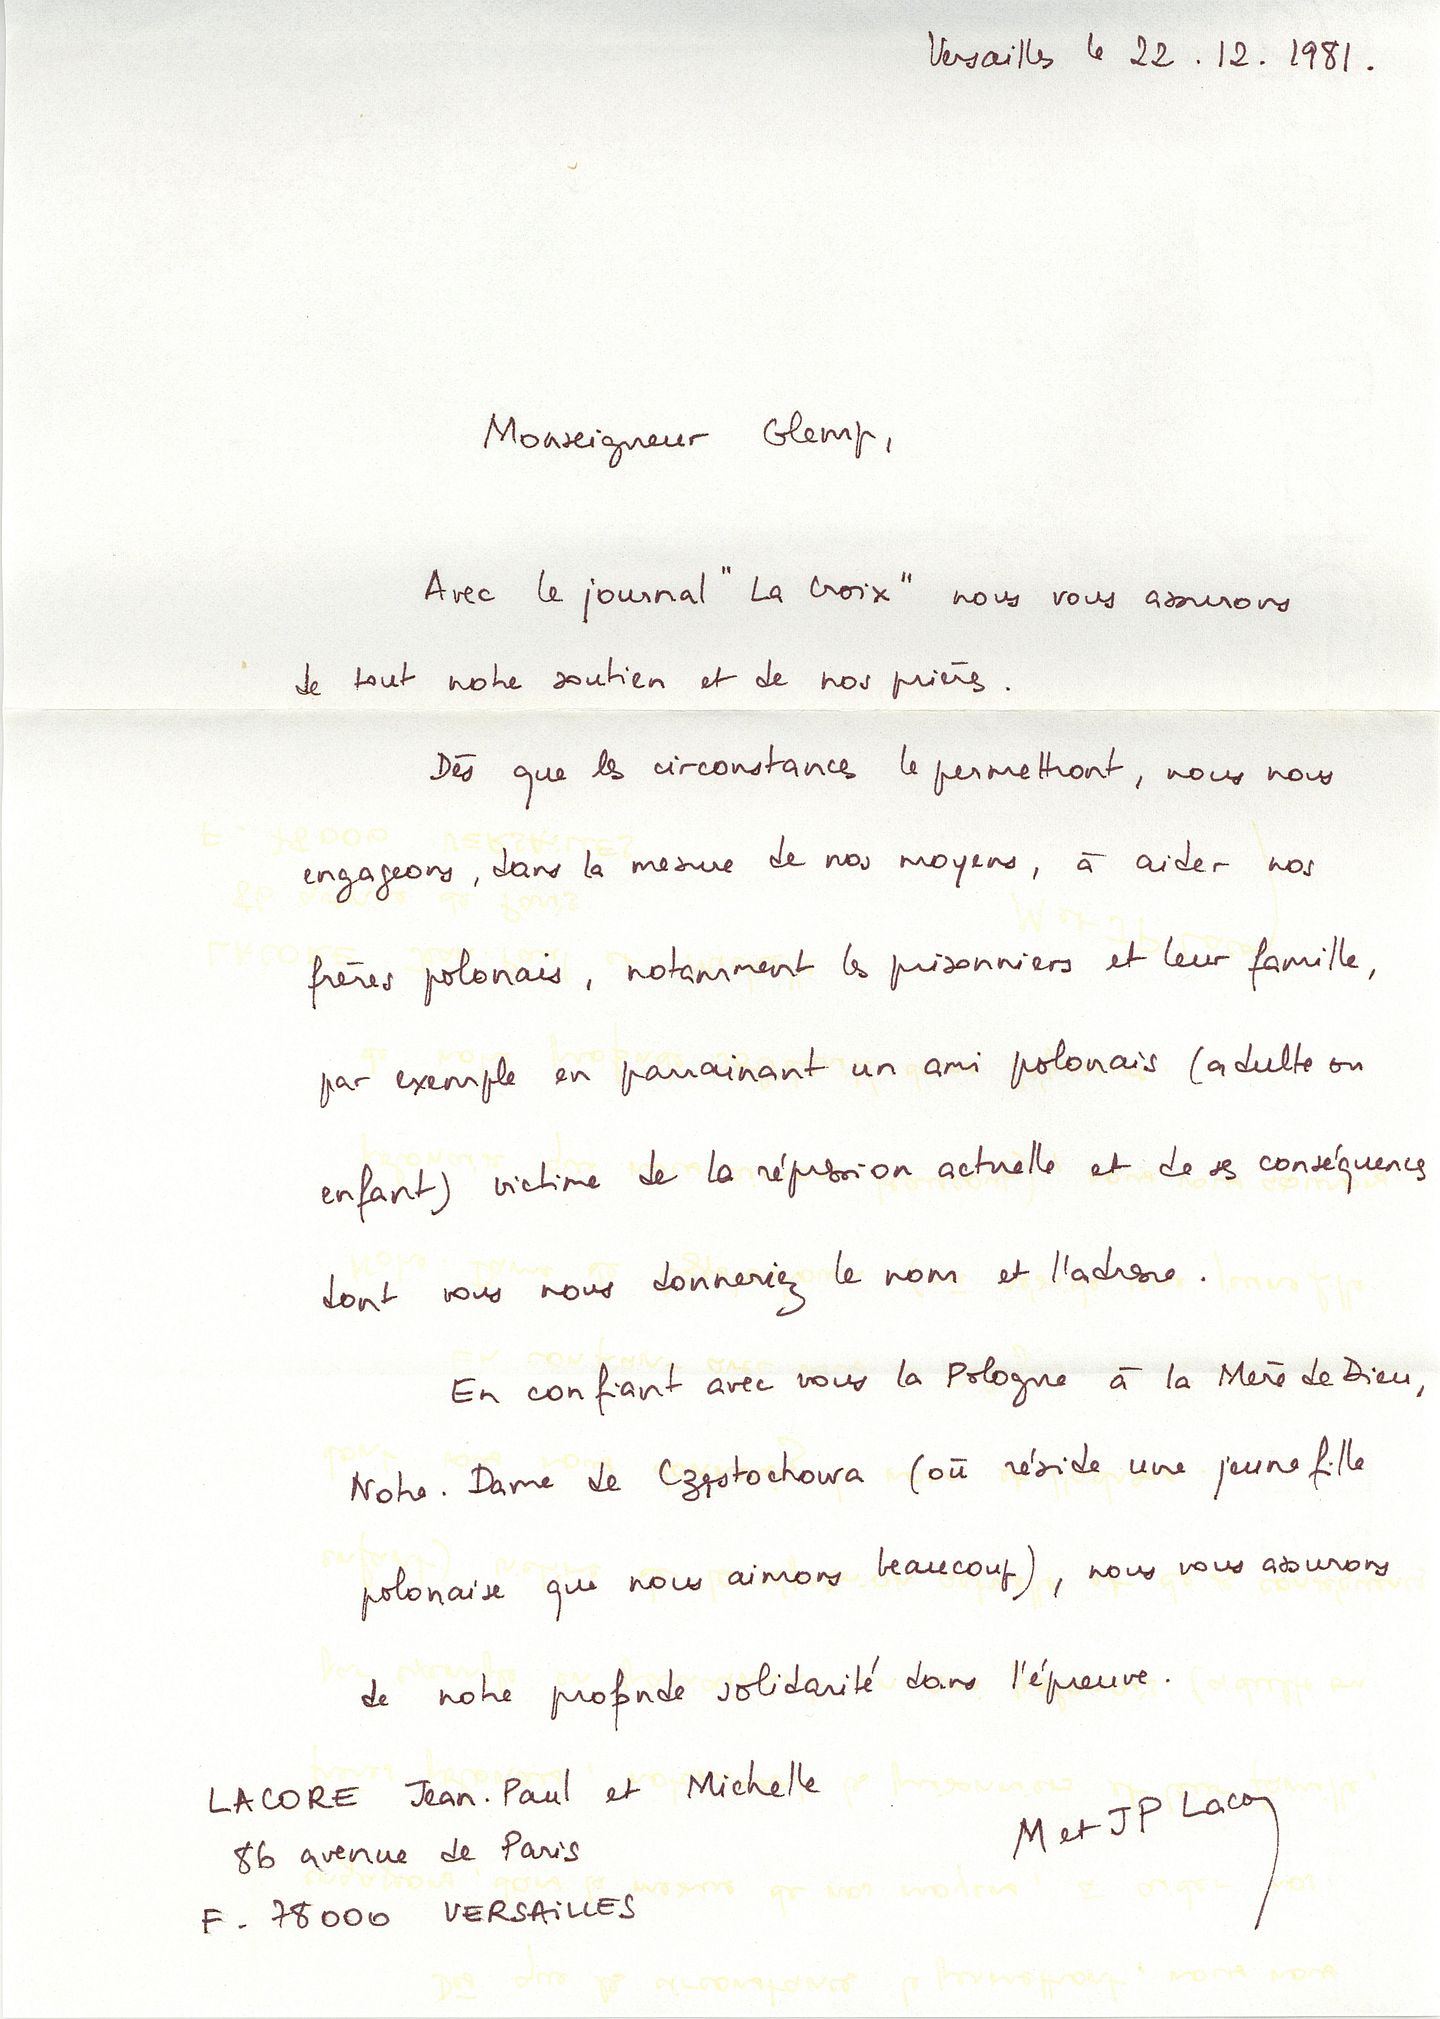 Versailles le 22.12.1981.
Monseigneur Glemp,
Avec le journal "La Croix" nous vous assurons
de tout notre soutien et de nos prières.
Dès que les circonstances le permettront, nous nous
engageons, dans la mesure de nos moyens, à aider nos
frères polonais, notamment les prisonniers et leur famille,
par exemple en parrainant un ami polonais (adulte ou
enfant) victime de la répression actuelle et de ses conséquences
dont vous nous donneriez le nom et l'adresse.
En confiant avec vous la Pologne à la Mère de Dieu,
Notre-Dame de Częstochowa (où réside une jeune fille
polonaise que nous aimons beaucoup), nous vous assurons
de notre profonde solidarité dans l'épreuve.
LACORE Jean-Paul et Michelle
86 avenue de Paris
F-78000 VERSAILLES
M et JP Lacore